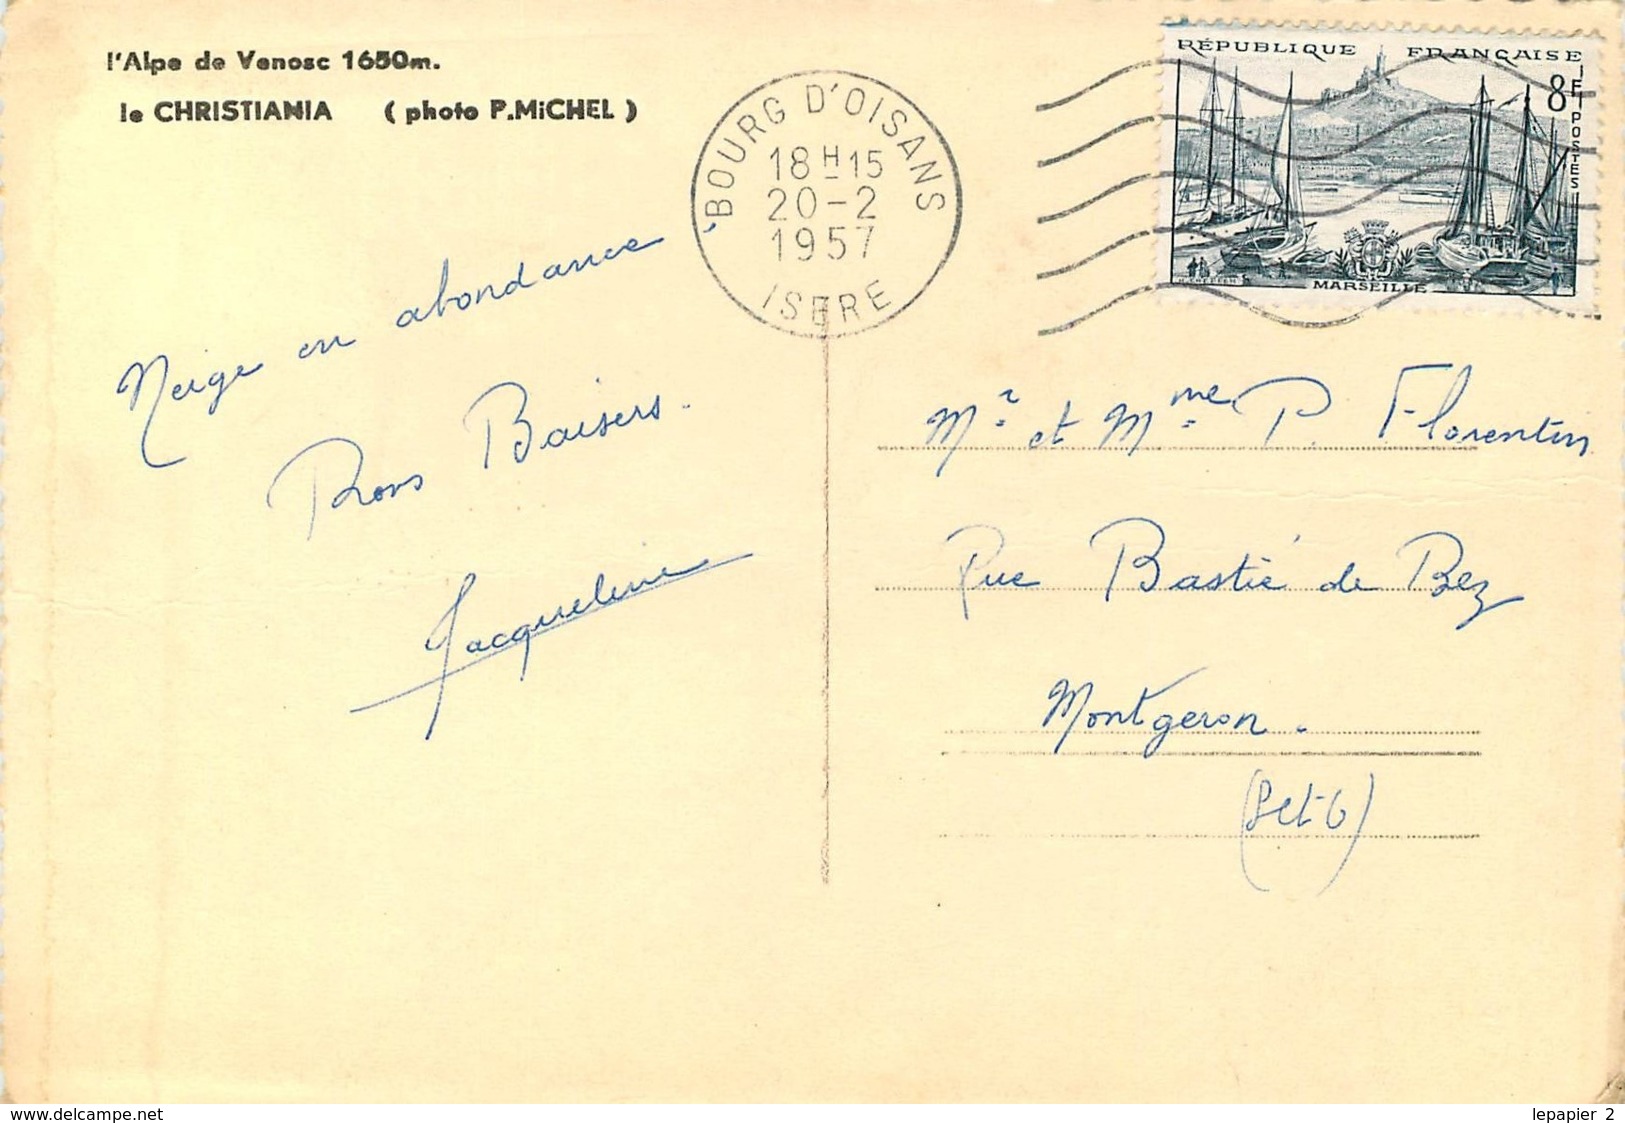 l'Alpe de Venosc 1650m.
le CHRISTIANIA ( photo P.MiCHEL )
BOURG D'OISANS
18H15
20-2
1957
ISERE
RÉPUBLIQUE FRANÇAISE
8F
POSTES
MARSEILLE
Neige en abondance
Bons Baisers.
Jacqueline
Mr et Mme P. Florentin
Rue Bastié de Bez
Montgeron.
(S et O)
www.delcampe.net
lepapier_2